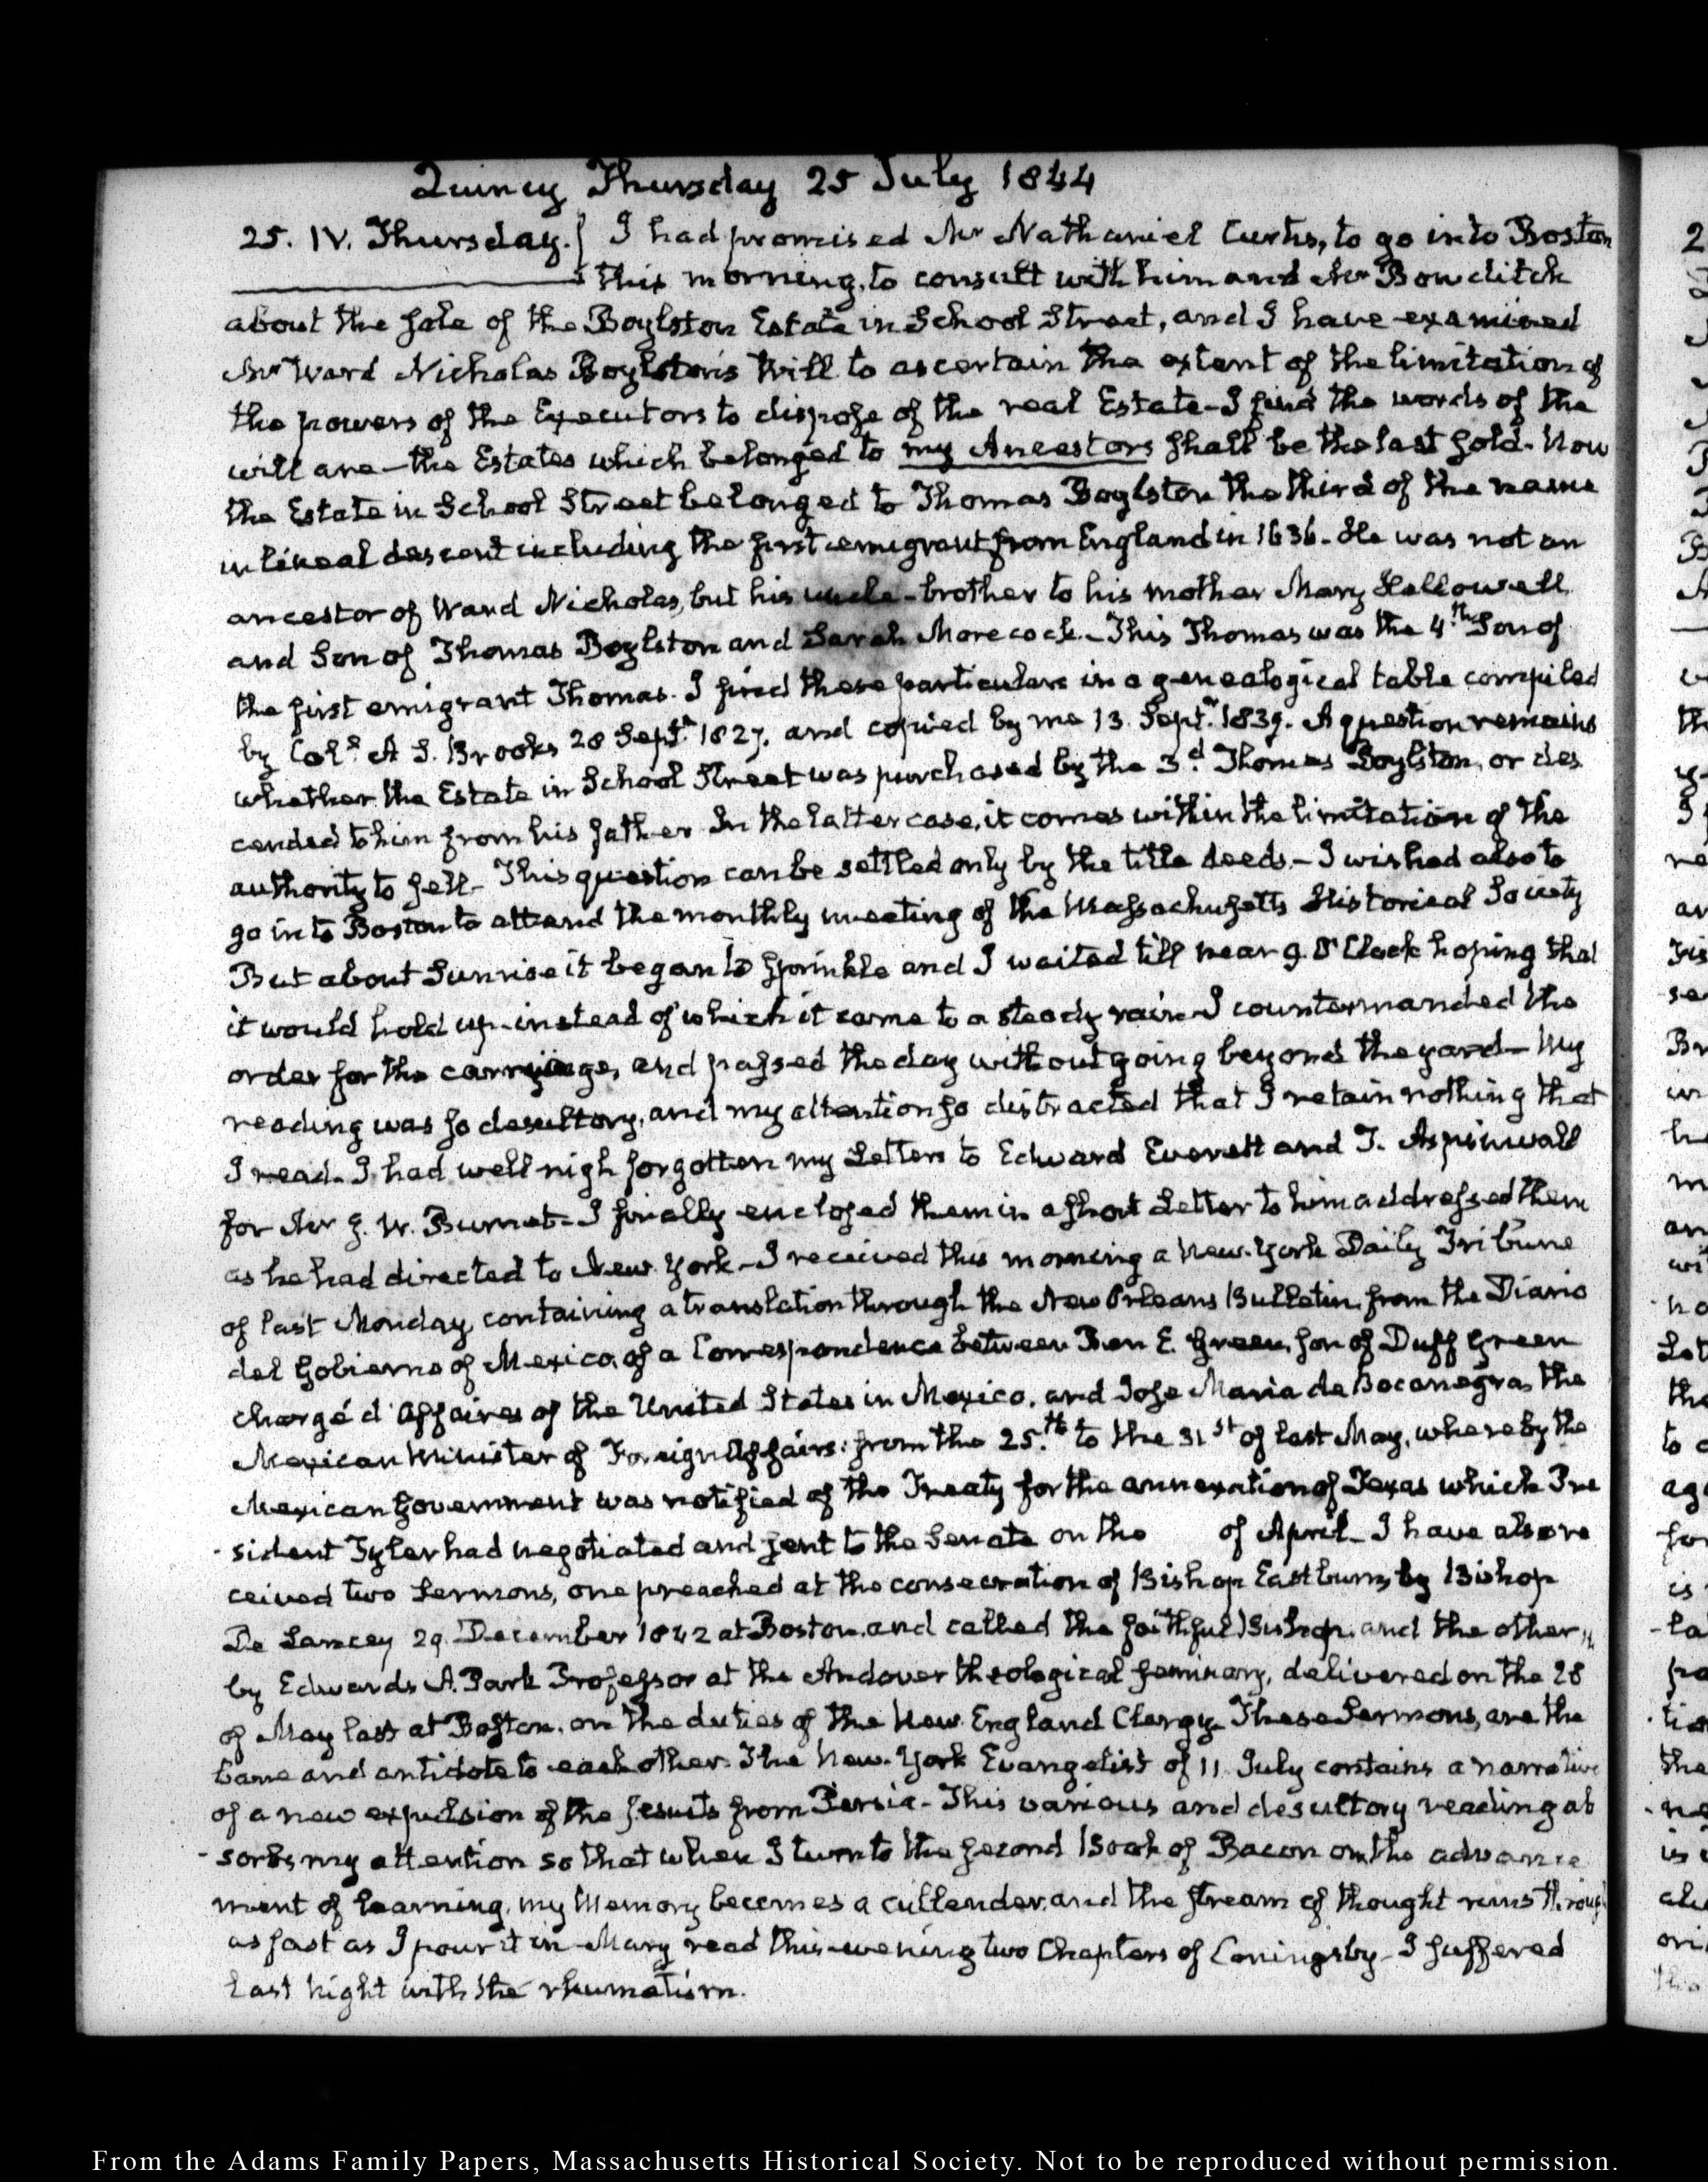 Quincy Thursday 25 July 1844
25. IV. Thursday. I had promised Mr Nathaniel Curtis, to go into Boston
this morning, to consult with him and Mr Bowditch
about the sale of the Boylston Estate in School Street, and I have examined
Mr Ward Nicholas Boylston's Will to ascertain the extent of the limitation of
the powers of the Executors to dispose of the real Estate – I find the words of the
will are – the Estates which belonged to my Ancestors shall be the last sold. Now
the Estate in School Street belonged to Thomas Boylston the third of the name
in lineal descent including the first emigrant from England in 1636. He was not an
ancestor of Ward Nicholas, but his uncle – brother to his mother Mary Hallowell
and Son of Thomas Boylston and Sarah Morecock. – This Thomas was the 4th Son of
the first emigrant Thomas. I find these particulars in a genealogical table compiled
by A S. Brooks 28 Sept. 1827. and copied by me 13. Septr 1839. A question remains
whether the Estate in School Street was purchased by the 3d Thomas Boylston, or des
cended to him from his father. In the latter case, it comes within the limitation of the
authority to sell – This question can be settled only by the title deeds. – I wished also to
go into Boston to attend the monthly meeting of the Massachusetts Historical Society
But about Sunrise it began to sprinkle and I waited till near 9. O'Clock hoping that
it would hold up – instead of which it came to a steady rain – I countermanded the
order for the carriage, and passed the day without going beyond the yard – My
reading was so desultory, and my attention so distracted that I retain nothing that
I read. I had well nigh forgotten my Letters to Edward Everett and T. Aspinwall
for Mr W. Burnet – I finally enclosed them in a short Letter to him addressed them
as he had directed to New York – I received this morning a New-York Daily Tribune
of last Monday, containing a translation through the New Orleans Bulletin, from the Diario
del Gobierno of Mexico, of a Correspondence between Ben E. Green, son of Duff Green
chargé d'Affaires of the United States in Mexico, and Jose Maria de Bocanegra, the
Mexican Minister of Foreign Affairs: from the 25.th to the 31st of last May, whereby the
Mexican Government was notified of the Treaty for the annexation of Texas which Pre
sident Tyler had negotiated and sent to the Senate on the of April – I have also re
ceived two Sermons, one preached at the consecration of Bishop Eastburn, by Bishop
De Lancey 29. December 1842 at Boston, and called the faithful Bishop. and the other,
by Edwards A. Park Professor at the Andover theological seminary, delivered on the 28
of May last at Boston, on the duties of the New England Clergy. These Sermons, are the
bane and antidote to each other. The New-York Evangelist of 11 July contains a narrative
of a new expulsion of the Jesuits from Persia – This various and desultory reading ab
sorbs my attention so that when I turn to the second Book of Bacon on the advance
ment of learning, my Memory becomes a cullender, and the stream of thought runs through
as fast as I pour it in – Mary read this evening two Chapters of Coningsby – I suffered
last night with the rhumatism.
From the Adams Family Papers, Massachusetts Historical Society. Not to be reproduced without permission.